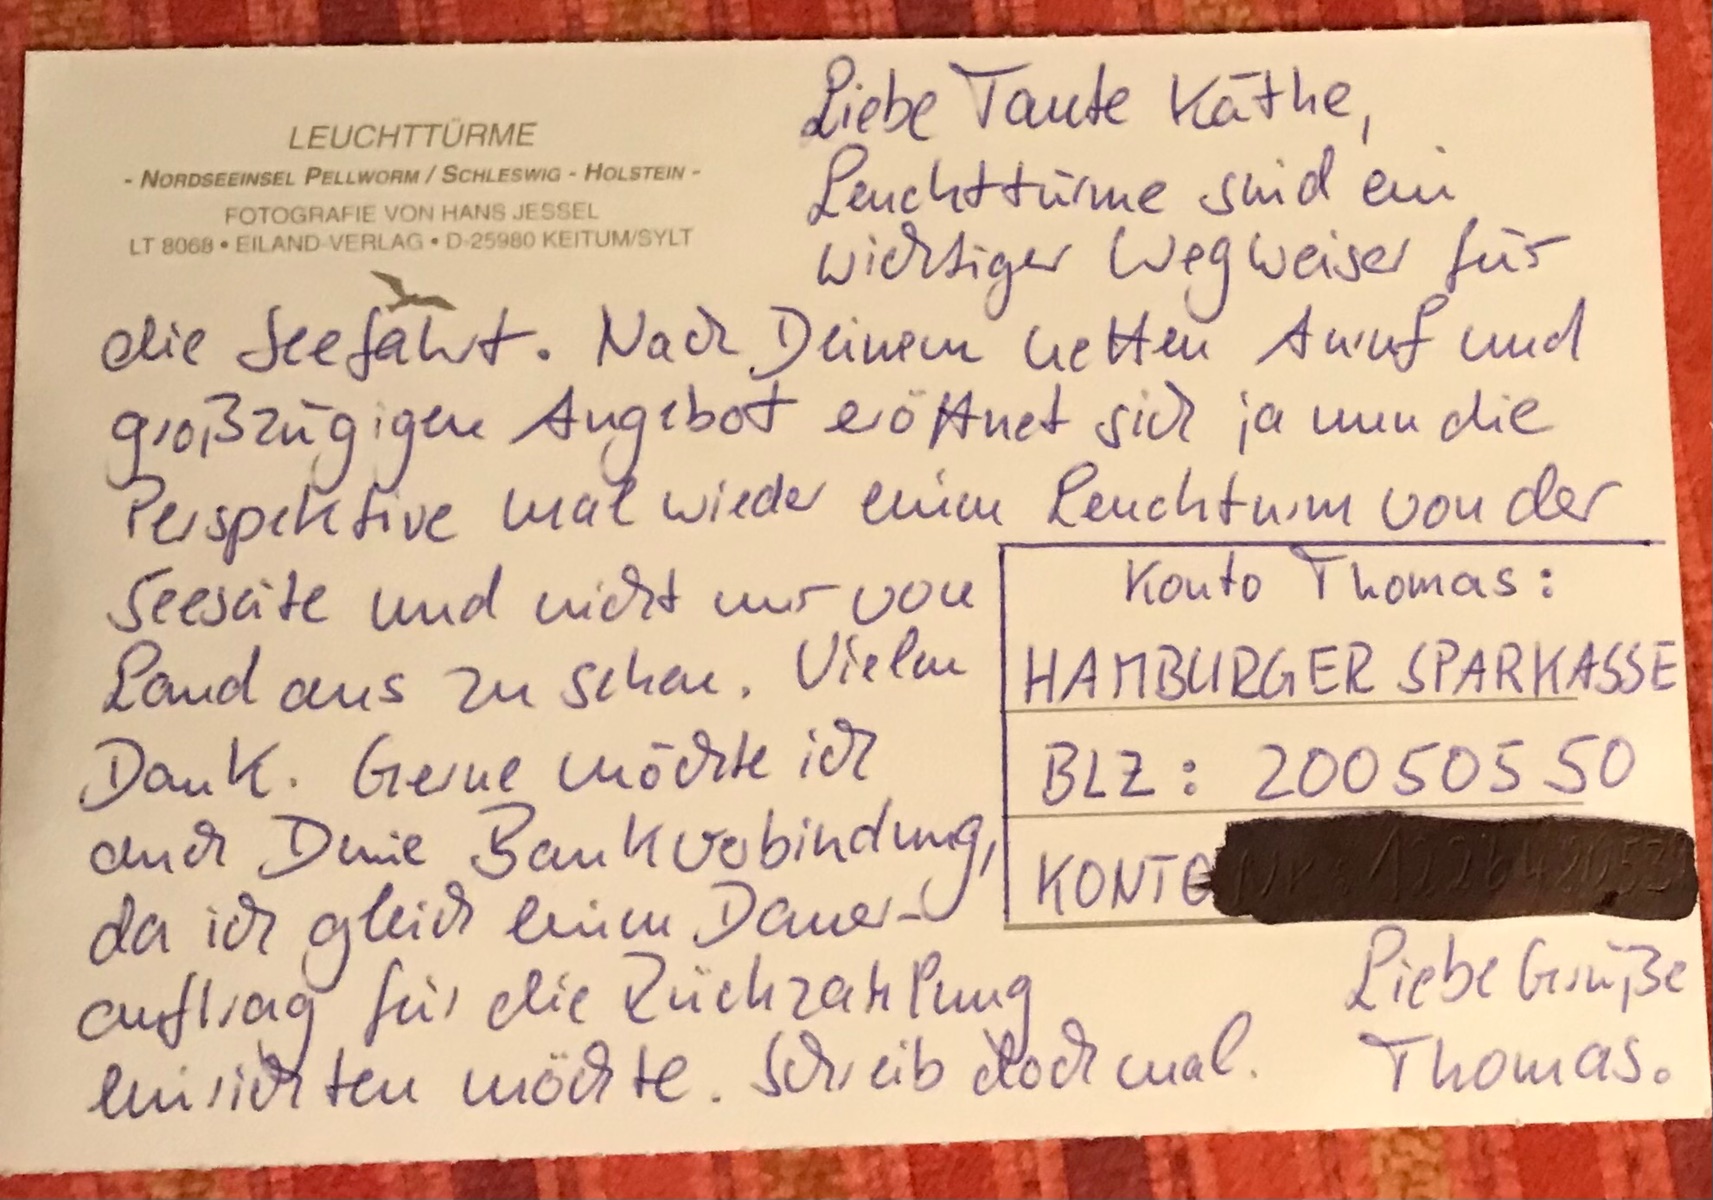 LEUCHTTÜRME
- NORDSEEINSEL PELLWORM / SCHLESWIG - HOLSTEIN -
FOTOGRAFIE VON HANS JESSEL
LT 8068 • EILAND-VERLAG • D-25980 KEITUM/SYLT
Liebe Tante Käthe,
Leuchttürme sind ein
wichtiger Wegweiser für
die Seefahrt. Nach Deinem netten Anruf und
großzügigen Angebot eröffnet sich ja nun die
Perspektive mal wieder einen Leuchturm von der
Seeseite und nicht nur von
Land aus zu sehen. Vielen
Dank. Gerne möchte ich
auch Deine Bankverbindung,
da ich gleich einen Dauer-
auftrag für die Rückzahlung
einrichten möchte. Schreib doch mal.
Konto Thomas:
HAMBURGER SPARKASSE
BLZ: 200 505 50
KONTO
Liebe Grüße
Thomas.